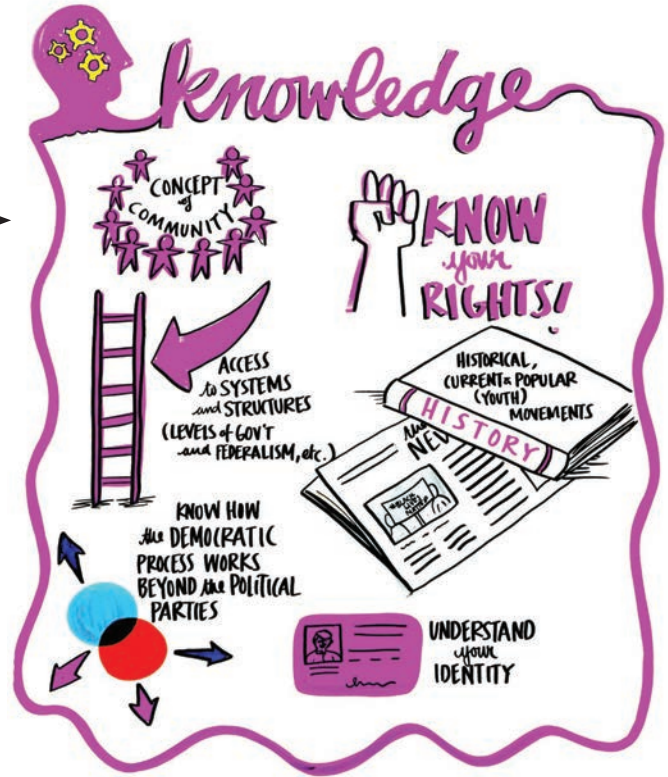 knowledge
CONCEPT
of
COMMUNITY
KNOW
your
RIGHTS!
ACCESS
to SYSTEMS
and STRUCTURES
(LEVELS of GOV'T
and FEDERALISM, etc.)
HISTORICAL,
CURRENT & POPULAR
(YOUTH)
MOVEMENTS
HISTORY
KNOW HOW
the DEMOCRATIC
PROCESS WORKS
BEYOND the POLITICAL
PARTIES
UNDERSTAND
your
IDENTITY